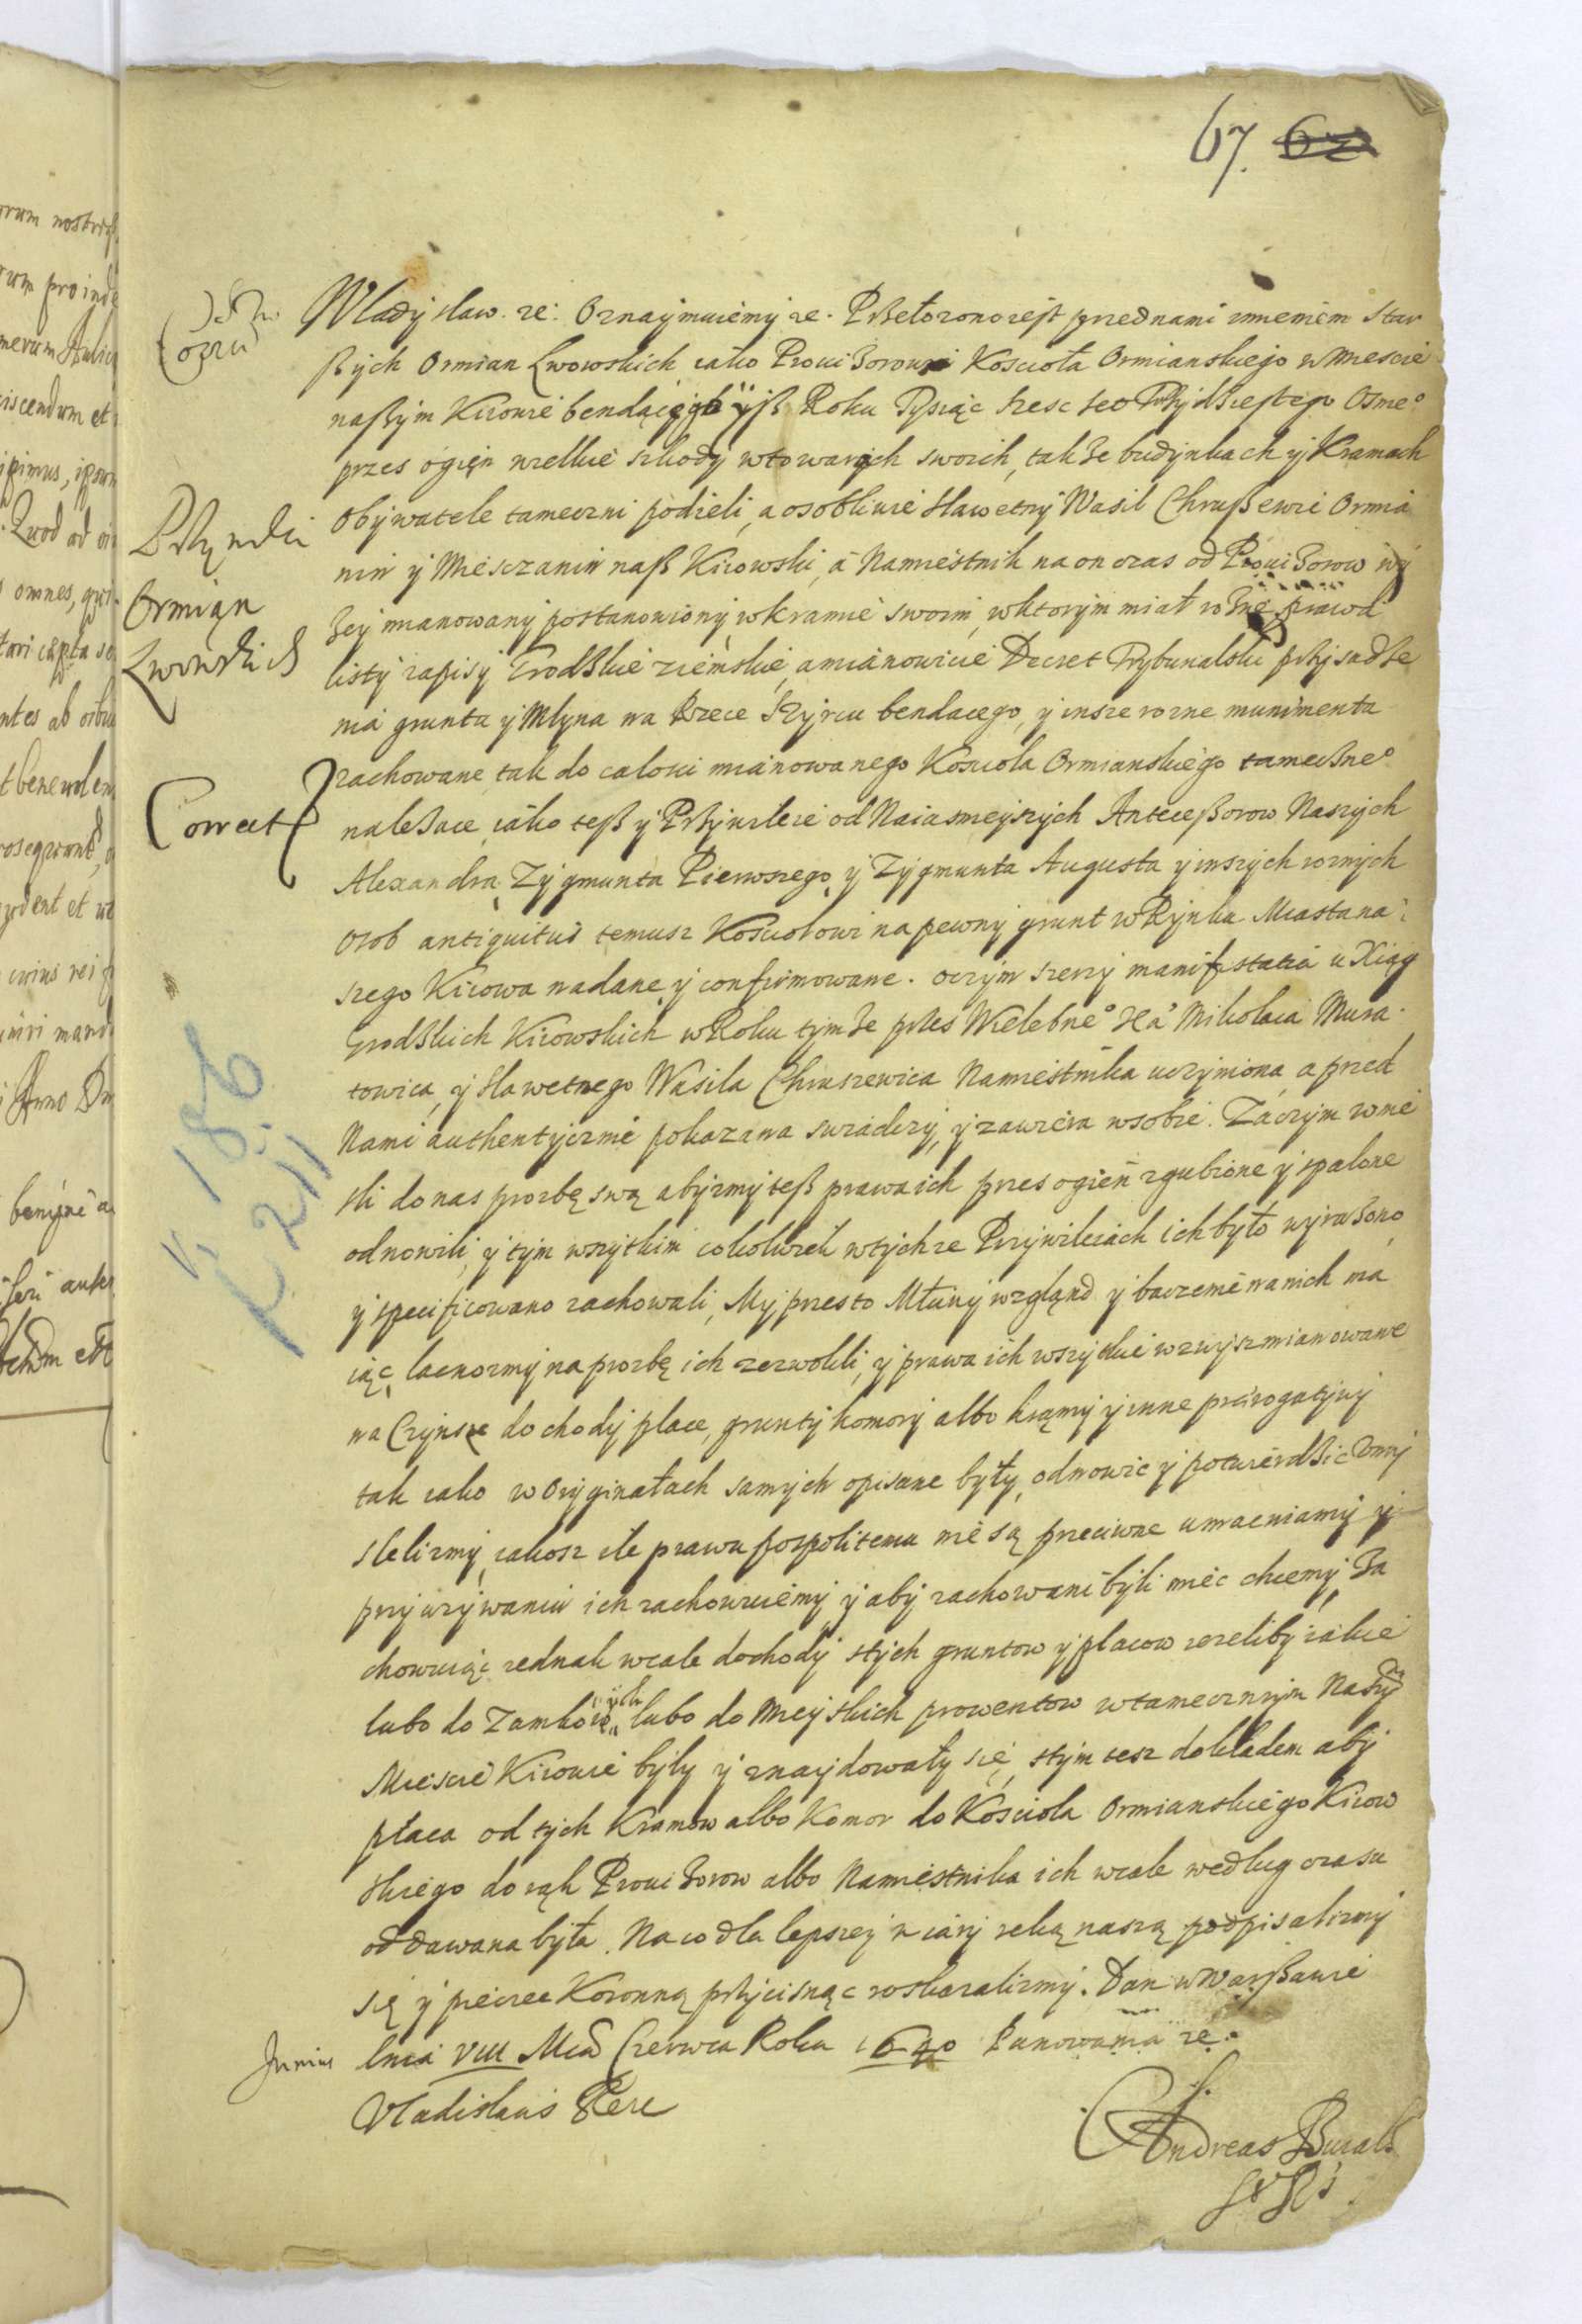 67. 62
Władysław. rc: Oznaymuiemy rc. Przełozono iest przed nami imieniem star
szych Ormian Lwowskich iako Prouizorow Koscioła Ormianskiego w Miescie
naszym Kiiowie bendącego ysz Roku Tysiąc szesc set Trzydziestego Osme°
przes ogien wielkie szkody w towarach swoich, takze budynkach y Kramach
Obywatele tameczni podieli, a osobliwie sławetny Wasil Chruszewic Ormia
nin y Miesczanin nasz Kiiowski, a Namiestnik na on czas od Prouizorow wy
zey mianowany postanowiony, w kramie swoim, w ktorym miał rozne prawa
listy zapisy Grodzkie ziemskie, a mianowicie Decret Trybunalski przysadze
nia gruntu y Młyna na Rzece Szyrcu bendacego, y insze rozne munimenta
zachowane tak do calosci mianowanego Kosciola Ormianskiego tameczne°
nalezace, iako tesz y Przywileie od Naiasnieyszych Antecessorow Naszych
Alexandra, Zygmunta Pierwszego, y Zygmunta Augusta y inszych roznych
Osob antiquitus temusz Kosciolowi na pewny grunt w Rynku Miasta na
szego Kiiowa nadane y confirmowane. o czym szerzy manifestatia u Xiąg
Grodzkich Kiiowskich w Roku tymze przes Wielebne° Xa Mikolaia Mura
towica, y sławetnego Wasila Chruszewica Namiestnika uczyniona, a przed
Nami authentycznie pokazana swiadczy, y zawiera w sobie. Zaczym wnie
sli do nas prozbę swą abysmy tesz prawa ich przes ogien zgubione y spalone
odnowili, y tym wszytkim cokolwiek w tychze Przywileiach ich było wyrazono
y specificowano zachowali, My przesto Młciwy wzgląnd y baczenie na nich ma
iąc, lacnosmy na prozbę ich zezwolili, y prawa ich wszytkie wzwysz mianowane
na Czynsze dochody place, grunty komory albo kramy y inne prerogatywy
tak iako w Oryginałach samych opisane były, odnowic y potwierdzic Vmy
slelismy, iakosz ile prawu pospolitemu nie są przeciwne umacniamy y
przy uzywaniu ich zachowuiemy y aby zachowani byli miec chcemy, Za
chowuiąc iednak wcale dochody s tych gruntow y placow iezeliby iakie
lubo do Zamkowych lubo do Mieyskich prowentow w tamecznym Naszym
Miescie Kiiowie były y znaydowały się, s tym tesz dokładem aby
płaca od tych Kramow albo Komor do Kosciola Ormianskiego Kiiow
skiego do rąk Prouizorow albo Namiestnika ich wcale według czasu
oddawana była. Na co dla lepszey wiary ręką naszą podpisalismy
się y pieczec Koronną przycisnąc roskazalismy. Dan w Warszawie
Dnia VIII Mca Czerwca Roku 1640 Panowania rc.
Vladislaus Rex
Andreas
Przywilei
Ormian
Lwowskich
Correct
Junius